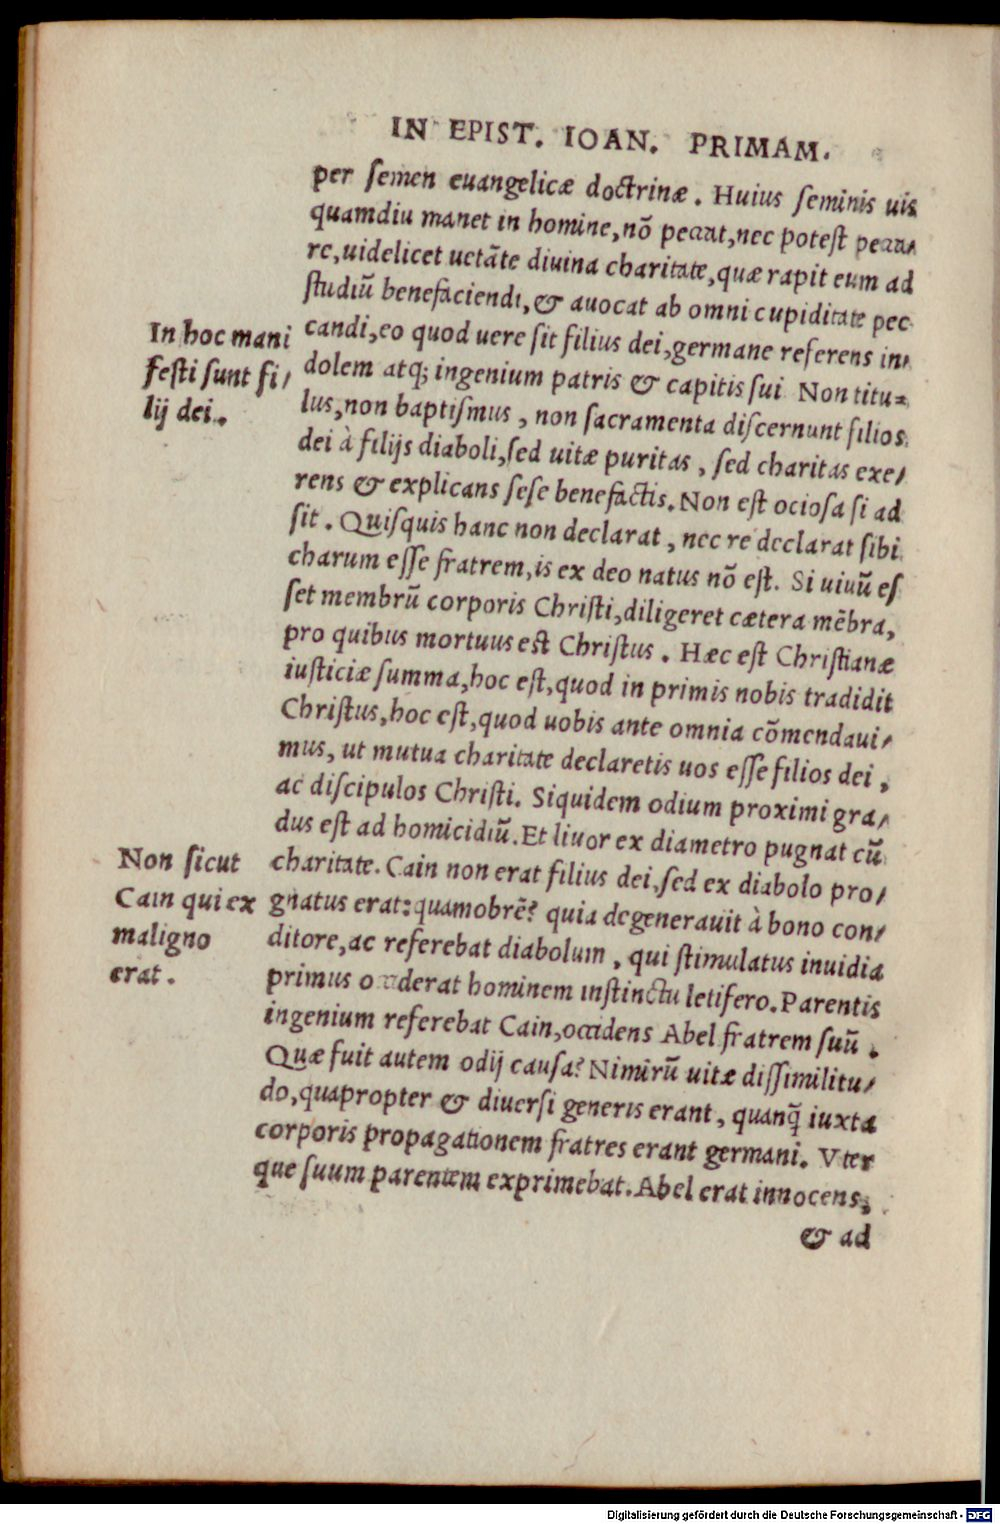 IN EPIST. IOAN. PRIMAM.
per ſemen euangelicæ doctrinæ. Huius ſeminis uis
quamdiu manet in homine, nō peccat, nec poteſt pecca/
re, uidelicet uetāte diuina charitate, quæ rapit eum ad
ſtudiū benefaciendi, & auocat ab omni cupiditate pec
candi, eo quod uere ſit filius dei, germane referens in/
dolem atq; ingenium patris & capitis ſui Non titu=
lus, non baptiſmus, non ſacramenta diſcernunt filios
dei à filijs diaboli, ſed uitæ puritas, ſed charitas exe/
rens & explicans ſeſe benefactis. Non eſt ocioſa ſi ad
ſit. Quiſquis hanc non declarat, nec re declarat ſibi
charum eſſe fratrem, is ex deo natus nō eſt. Si uiuū eſ
ſet membrū corporis Chriſti, diligeret cætera mēbra,
pro quibus mortuus eſt Chriſtus. Hæc eſt Chriſtianæ
iuſticiæ ſumma, hoc eſt, quod in primis nobis tradidit
Chriſtus, hoc eſt, quod uobis ante omnia cōmendaui/
mus, ut mutua charitate declaretis uos eſſe filios dei,
ac diſcipulos Chriſti. Siquidem odium proximi gra/
dus eſt ad homicidiū. Et liuor ex diametro pugnat cū
charitate. Cain non erat filius dei, ſed ex diabolo pro/
gnatus erat: quamobrē? quia degenerauit à bono con/
ditore, ac referebat diabolum, qui ſtimulatus inuidia
primus occiderat hominem inſtinctu letifero. Parentis
ingenium referebat Cain, occidens Abel fratrem ſuū.
Quæ fuit autem odij cauſa? Nimirū uitæ diſſimilitu/
do, quapropter & diuerſi generis erant, quanq̄ iuxta
corporis propagationem fratres erant germani. Vter
que ſuum parentem exprimebat. Abel erat innocens,
& ad
In hoc mani
feſti ſunt fi/
lij dei.
Non ſicut
Cain qui ex
maligno
erat.
Digitalisierung gefördert durch die Deutsche Forschungsgemeinschaft - DFG